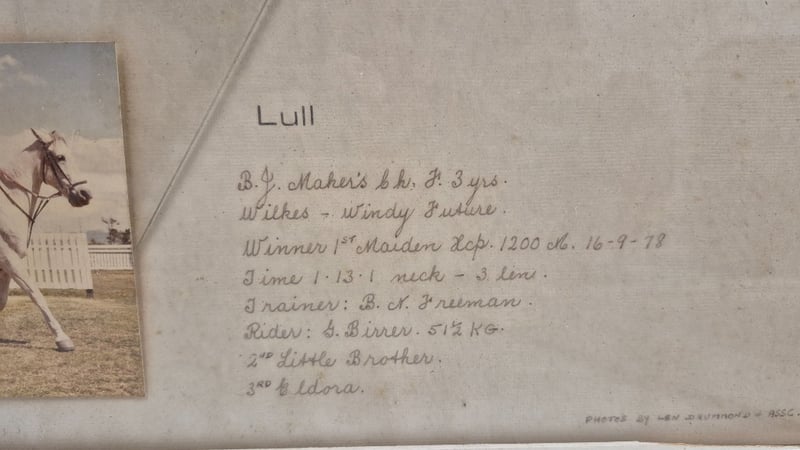 Lull
B.J. Maker's Ch, F. 3 yrs.
Wilkes - Windy Future.
Winner 1ST Maiden Hcp. 1200 M. 16-9-78
Time 1.13.1 neck - 3 len.
Trainer: B. N. Freeman.
Rider: G. Birrer. 51½ KG.
2ND Little Brother.
3RD Eldora.
PHOTOS BY LEN DRUMMOND & ASSC.